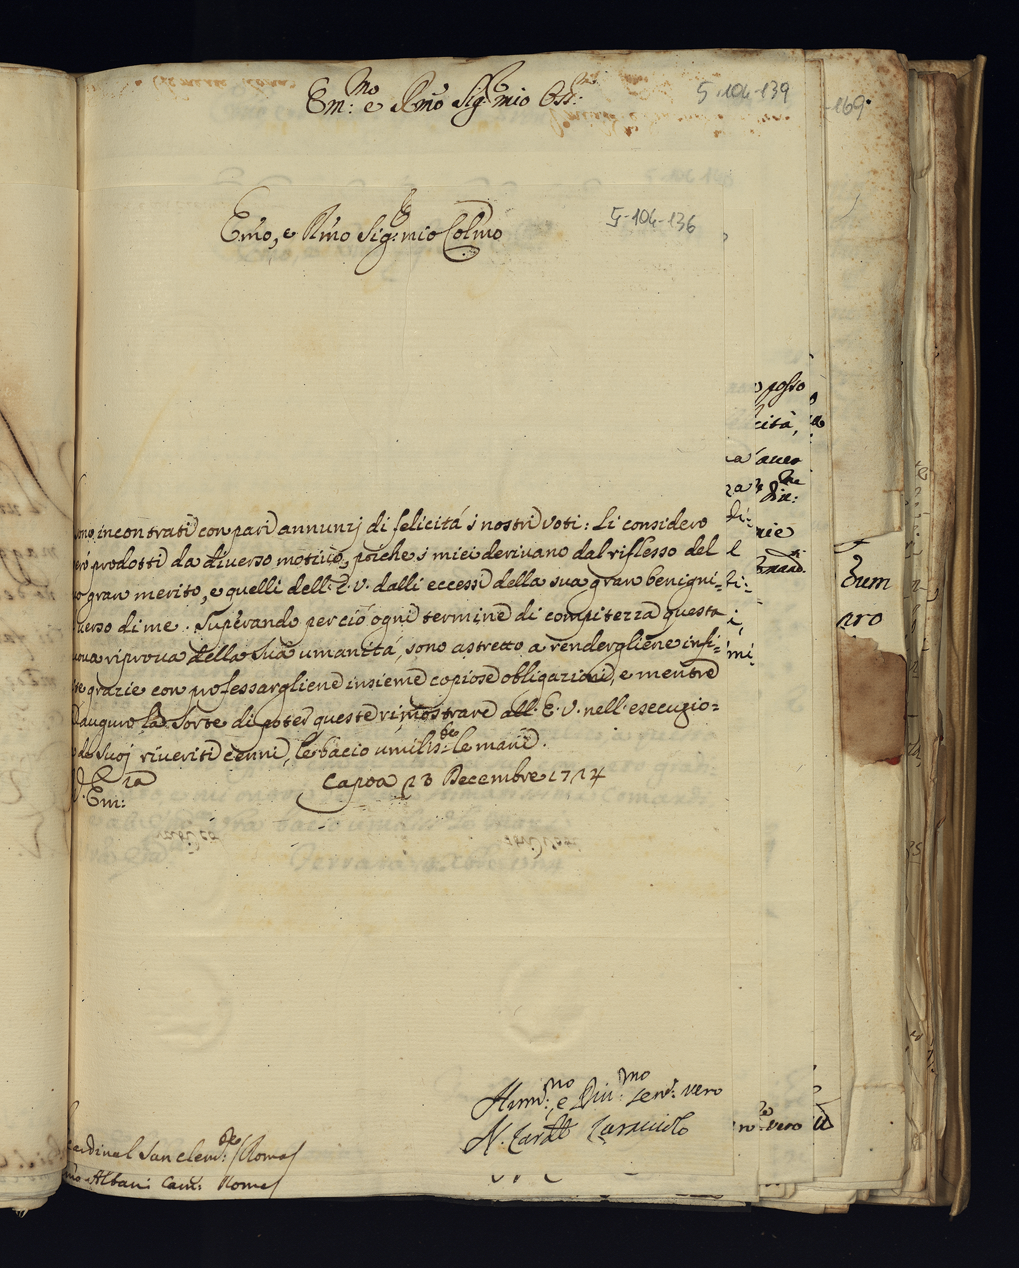 Em:mo e Rmo Sig:r mio Oss:
5-104-139
-169
Emo, e Rmo Sig:re mio Colmo
5-104-136
ono, incontrati con pari annunzj di felicitá i nostri voti: Li considero
eró prodotti da diverso motivo, poiche i miei derivano dal riflesso del
o gran merito, e quelli dell'E.V. dalli eccessi della sua gran benigni=
verso di me. Superando perció ogni termine di compitezza questa
uova riprova della sua umanitá, sono astretto a rendergliene infi=
te grazie con professargliene insieme copiose obligazioni, e mentre
auguro la sorte di poter queste rimostrare all'E.V. nell'esecuzio=
de suoj riveriti cenni, le bacio umilis:te le mani.
V. Em:za
Capoa 23 Decembre 1714
o posso
cità,
auer
Eum
Hum:mo e Diu:mo Ser: vero
N. Card Caracciolo
vero
ardinal San Clem:te /Roma/
Albani Cam: Roma/